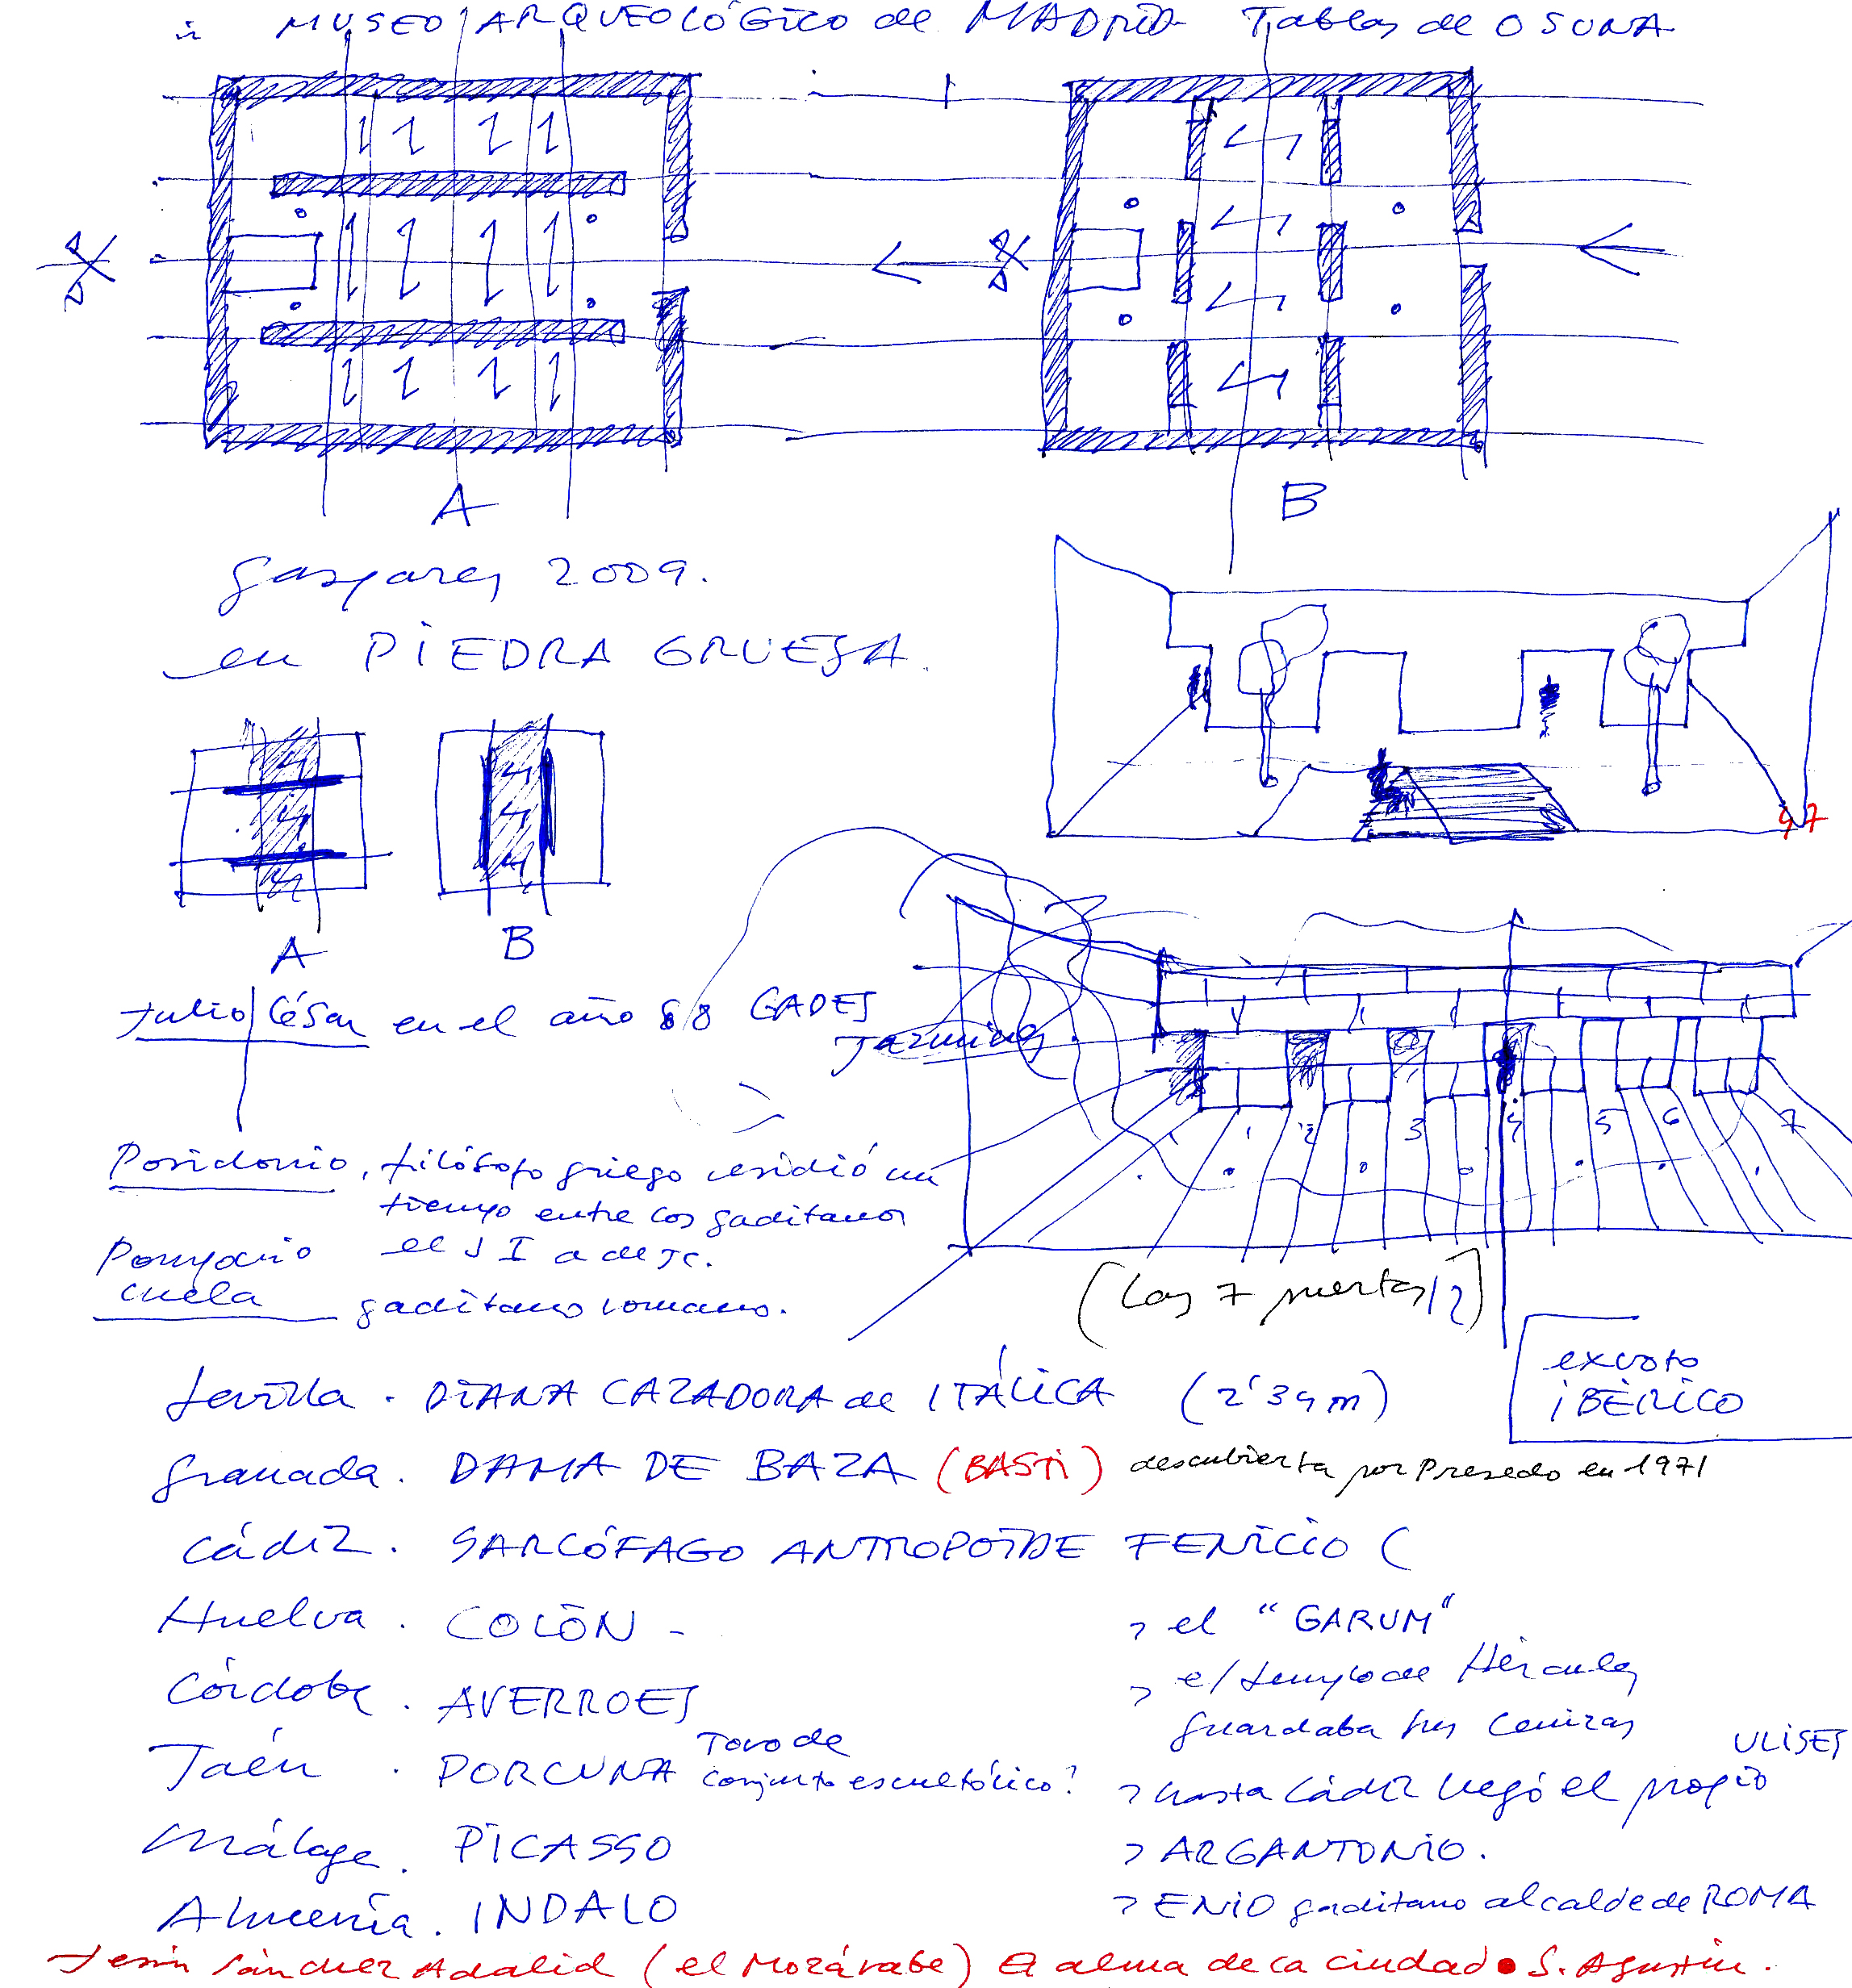 MUSEO ARQUEOLÓGICO de MADRID Tablas de OSUNA
A
B
gaspares 2009.
en PIEDRA GRUESA.
A
B
47
Julio César en el año 68 GADES
Jazmines.
1 2 3 4 5 6 7
Posidonio, filósofo griego residió un
tiempo entre los gaditanos
el s I a de JC.
Pomponio
gaditano romano.
(Las 7 puertas/2)
exvoto
iBÉRICO
Sevilla. DIANA CAZADORA de ITÁLICA (2'34m)
Granada. DAMA DE BAZA (BASTI) descubierta por Presedo en 1971
Cádiz. SARCÓFAGO ANTROPOIDE FENICIO (
Huelva. COLÓN -
Córdoba. AVERROES
Jaén. PORCUNA Toro de
conjunto escultórico?
Málaga. PICASSO
Almería. INDALO
> el "GARUM"
> el templo de Hércules
guardaba sus cenizas
> hasta Cádiz llegó el propio ULISES
> ARGANTONIO.
> ENIO gaditano alcalde de ROMA
Jesús Sánchez Adalid (el Mozárabe) El alma de la ciudad • S. Agustín.